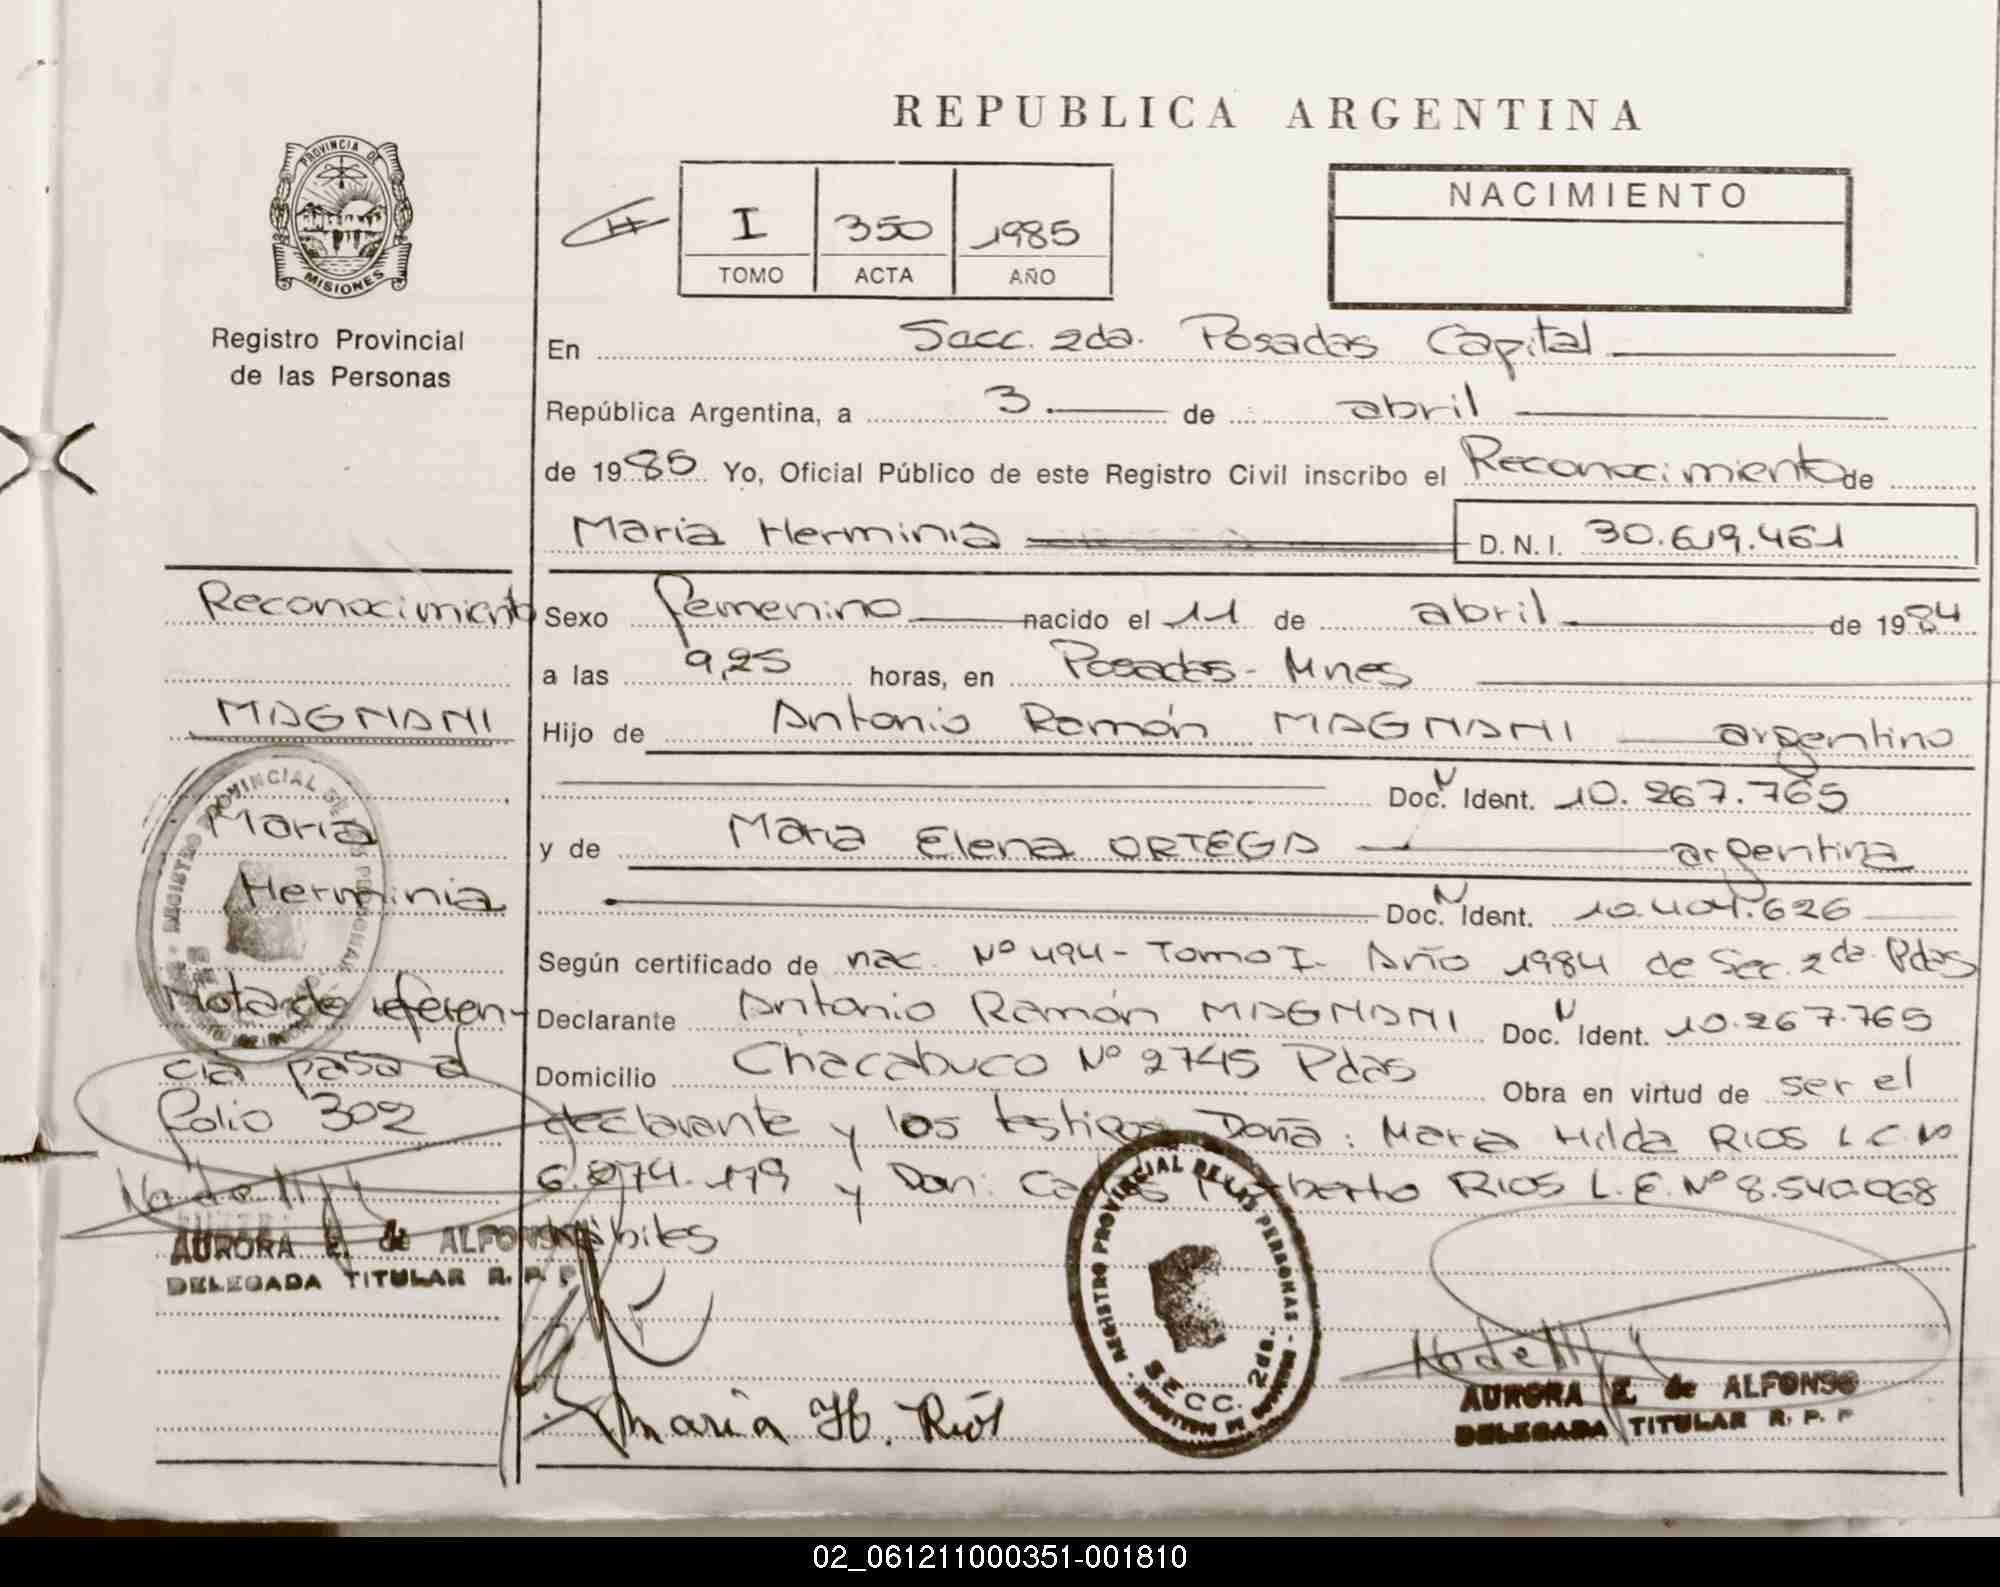 REPUBLICA ARGENTINA
PROVINCIA DE
MISIONES
Registro Provincial
de las Personas
I 350 1985
TOMO ACTA AÑO
NACIMIENTO
En Secc. 2da. Posadas Capital
República Argentina, a 3 de abril
de 1985 Yo, Oficial Público de este Registro Civil inscribo el Reconocimiento de
Maria Herminia D. N. I. 30.619.461
Sexo femenino nacido el 11 de abril de 1984
a las 9,25 horas, en Posadas - Mnes
Hijo de Antonio Ramón MAGNANI argentino
Doc. N Ident. 10.267.765
y de Maria Elena ORTEGA argentina
Doc. N Ident. 10.404.626
Según certificado de nac. Nº 494 - Tomo I - Año 1984 de Sec. 2da. Pdas
Declarante Antonio Ramón MAGNANI Doc. N Ident. 10.267.765
Domicilio Chacabuco Nº 2745 Pdas Obra en virtud de ser el
declarante y los testigos Doña: Maria Hilda RIOS L.C. Nº
6.274.179 y Don: Carlos Alberto RIOS L.E. Nº 8.540.068
hábiles
Reconocimiento
MAGNANI
Maria
Herminia
Nota de referen-
cia pasa al
folio 302
AURORA E. de ALFONSO
DELEGADA TITULAR R. P. P
Maria H. Rios
REGISTRO PROVINCIAL DE LAS PERSONAS
SECC. 2da.
AURORA E. de ALFONSO
DELEGADA TITULAR R. P. P
REGISTRO PROVINCIAL DE LAS PERSONAS
02_061211000351-001810